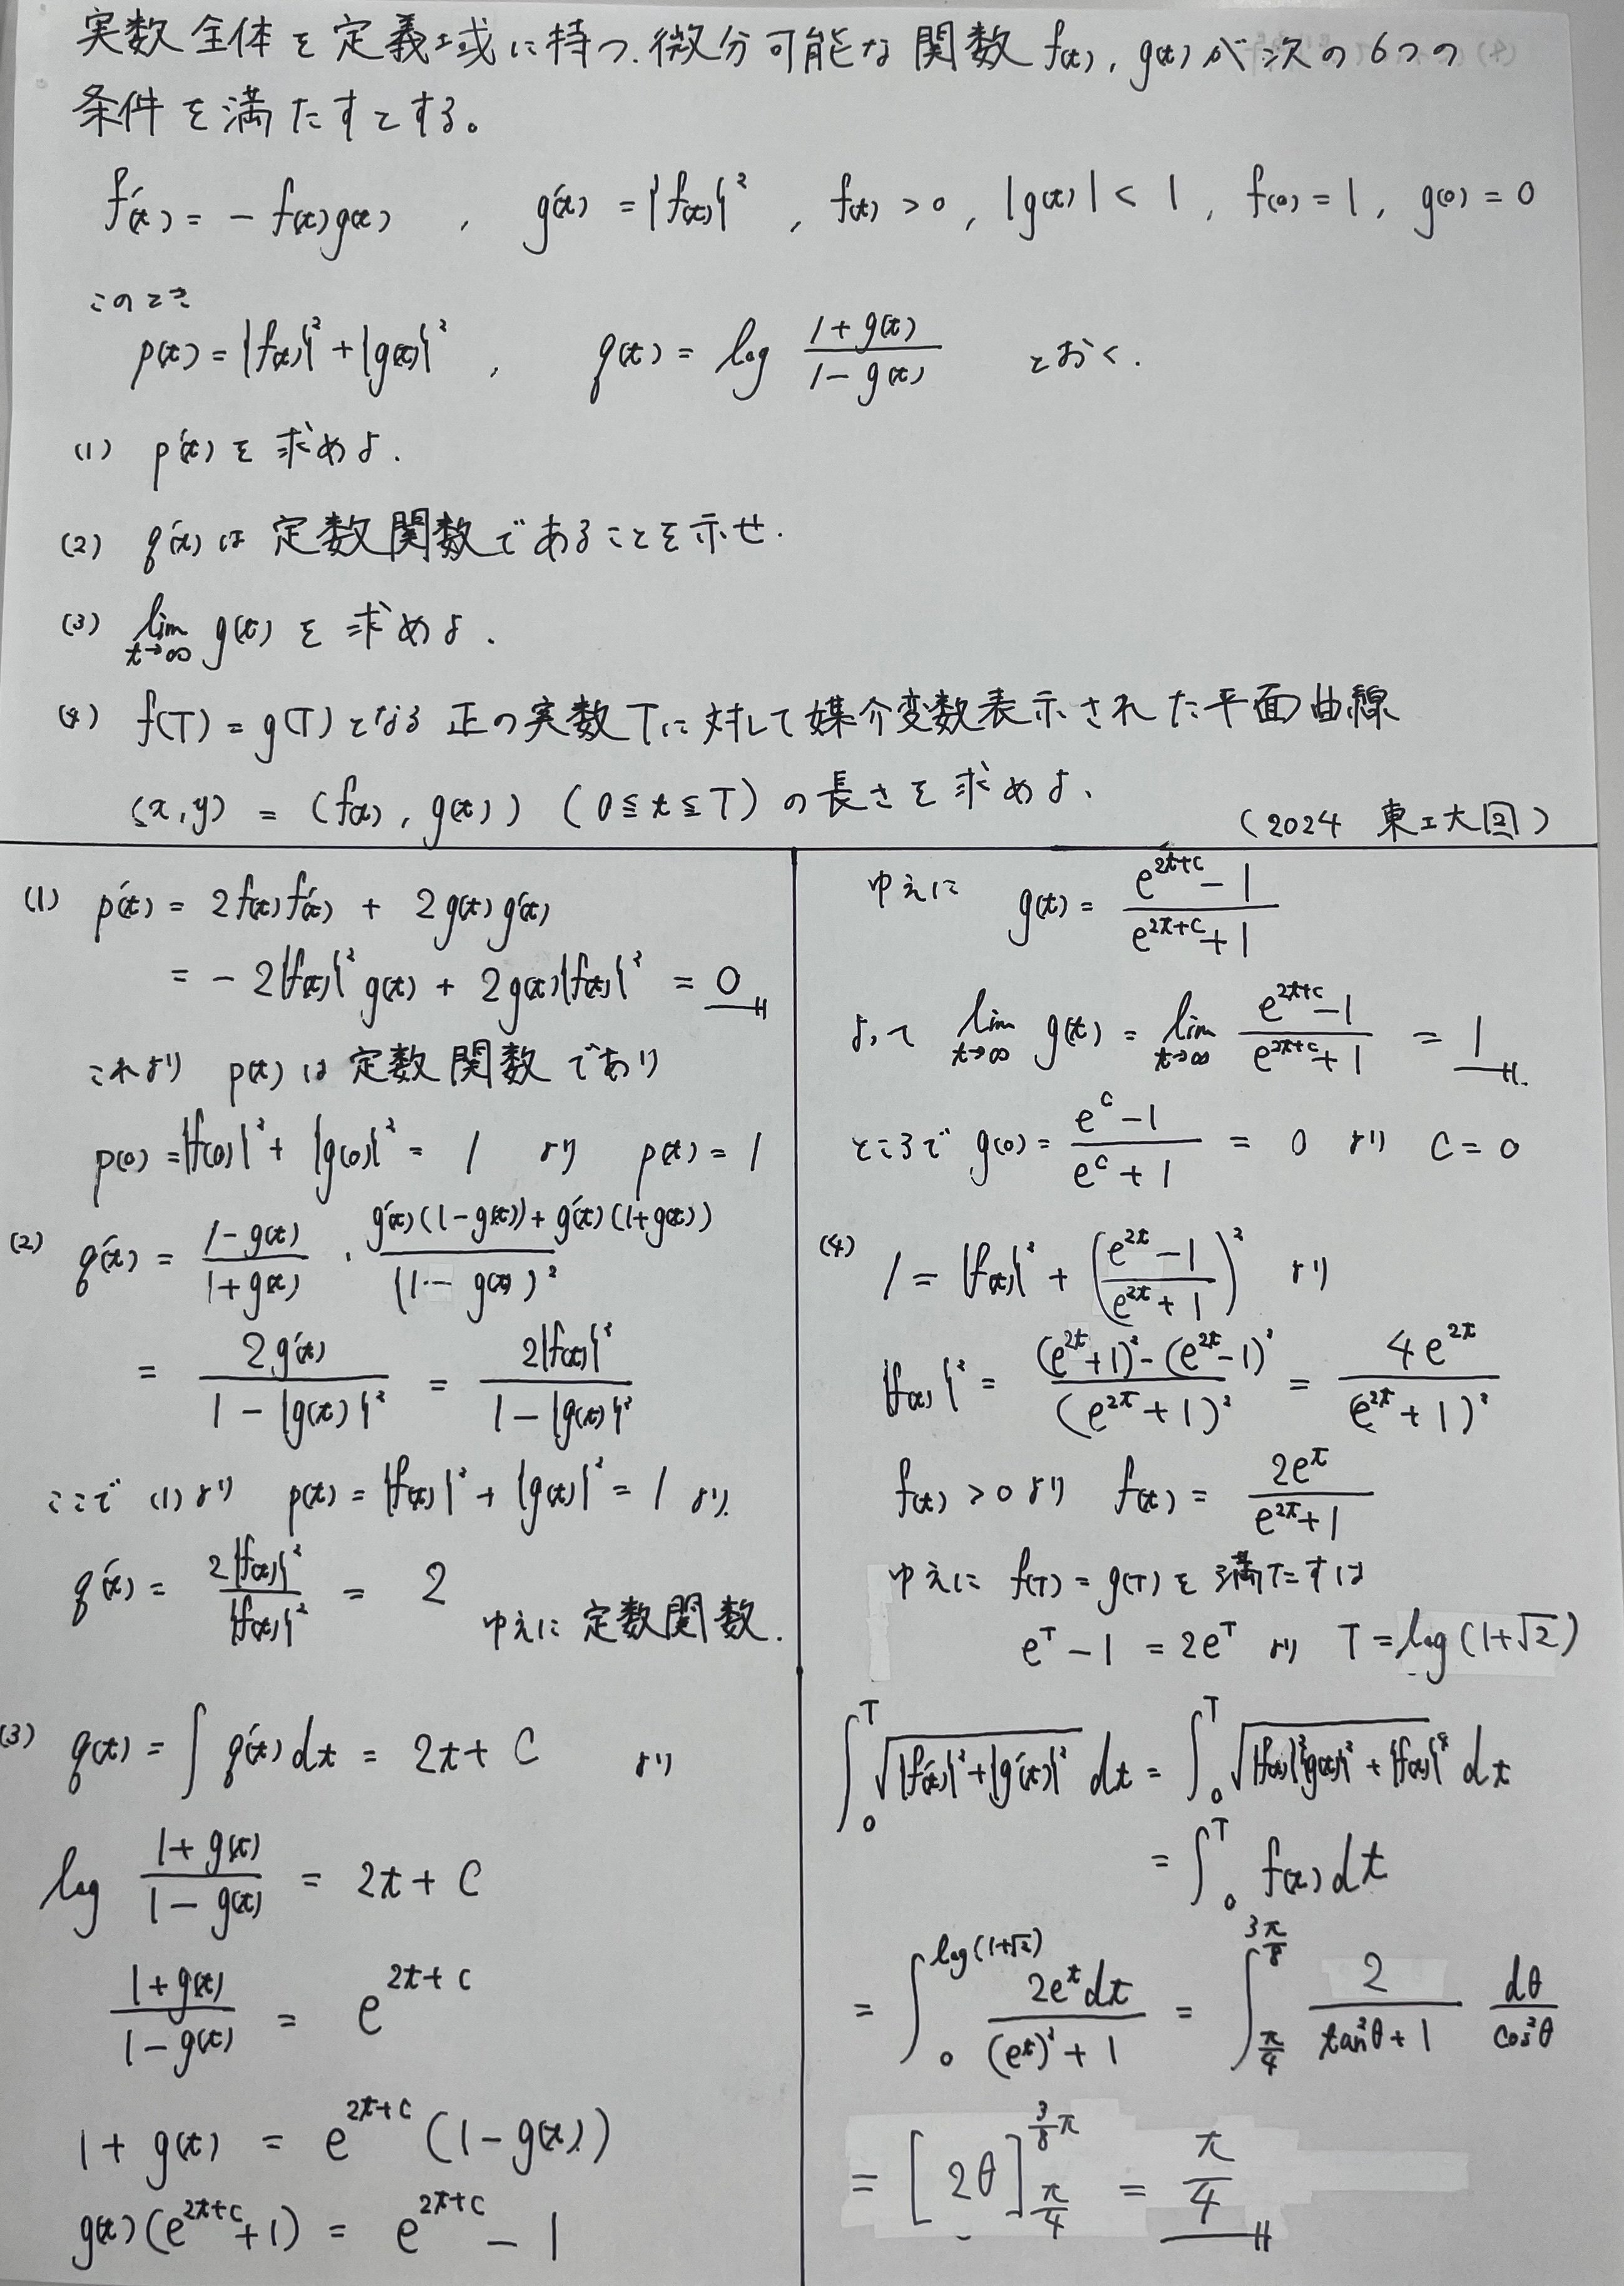 実数全体を定義域に持つ、微分可能な関数 f(t), g(t) が次の6つの
条件を満たすとする。
f'(t) = - f(t)g(t) , g'(t) = {f(t)}² , f(t) > 0 , |g(t)| < 1 , f(0) = 1 , g(0) = 0
このとき
p(t) = {f(t)}² + {g(t)}² , q(t) = log (1+g(t))/(1-g(t)) とおく.
(1) p'(t) を求めよ.
(2) q'(t) は 定数関数であることを示せ.
(3) lim_{t→∞} g(t) を求めよ.
(4) f(T) = g(T) となる 正の実数Tに対して媒介変数表示された平面曲線
(x,y) = (f(t), g(t)) (0≦t≦T) の長さを求めよ.
(2024 東工大 図)
(1) p'(t) = 2f(t)f'(t) + 2g(t)g'(t)
= - 2{f(t)}² g(t) + 2g(t){f(t)}² = 0
これより p(t) は 定数関数であり
p(0) = {f(0)}² + {g(0)}² = 1 より p(t) = 1
(2) q'(t) = (1-g(t))/(1+g(t)) · (g'(t)(1-g(t))+g'(t)(1+g(t)))/(1-g(t))²
= 2g'(t)/(1-{g(t)}²) = 2{f(t)}²/(1-{g(t)}²)
ここで (1)より p(t) = {f(t)}² + {g(t)}² = 1 より
q'(t) = 2{f(t)}²/{f(t)}² = 2 ゆえに 定数関数.
(3) q(t) = ∫ q'(t) dt = 2t + C より
log (1+g(t))/(1-g(t)) = 2t + C
(1+g(t))/(1-g(t)) = e^{2t+C}
1 + g(t) = e^{2t+C} (1-g(t))
g(t)(e^{2t+C}+1) = e^{2t+C} - 1
ゆえに g(t) = (e^{2t+C} - 1)/(e^{2t+C} + 1)
よって lim_{t→∞} g(t) = lim_{t→∞} (e^{2t+C} - 1)/(e^{2t+C} + 1) = 1
ところで g(0) = (e^C - 1)/(e^C + 1) = 0 より C = 0
(4) 1 = {f(t)}² + ((e^{2t} - 1)/(e^{2t} + 1))² より
{f(t)}² = ((e^{2t}+1)² - (e^{2t}-1)²)/(e^{2t}+1)² = 4e^{2t}/(e^{2t}+1)²
f(t) > 0 より f(t) = 2e^t/(e^{2t}+1)
ゆえに f(T) = g(T) を満たすは
e^T - 1 = 2e^T より T = log(1+√2)
∫_0^T √({f'(t)}²+{g'(t)}²) dt = ∫_0^T √({f(t)}²{g(t)}² + {f(t)}⁴) dt
= ∫_0^T f(t) dt
= ∫_0^{log(1+√2)} 2e^t dt/((e^t)² + 1) = ∫_{π/4}^{3π/8} 2/(tan²θ + 1) dθ/cos²θ
= [2θ]_{π/4}^{3/8 π} = π/4